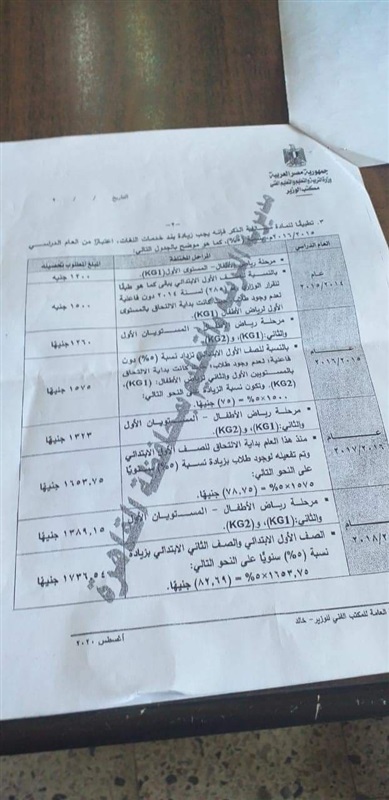 جمهورية مصر العربية
وزارة التربية والتعليم والتعليم الفني
مكتب الوزير
التاريخ / / ٢٠
-٢-
٣. تطبيقًا للمادة الذكر فإنه يجب زيادة بند خدمات اللغات، اعتبارًا من العام الدراسي
٢٠١٦/٢٠١٥ كما هو موضح بالجدول التالي:
العام الدراسي
المراحل المختلفة
المبلغ المطلوب تحصيله
عام
٢٠١٥/٢٠١٤
• مرحلة رياض الأطفال- المستوى الأول (KG1).
١٢٠٠ جنيه
• بالنسبة للصف الأول الابتدائي يبقى كما هو طبقًا
لقرار الوزاري لسنة ٢٠١٤ دون فاعلية
لعدم وجود طلاب كانت بداية الالتحاق بالمستوى
الأول لرياض الأطفال (KG1).
١٥٠٠ جنيه
عام
٢٠١٦/٢٠١٥
• مرحلة رياض الأطفال – المستويان الأول
والثاني: (KG1)، و(KG2).
١٢٦٠ جنيهًا
• بالنسبة للصف الأول الابتدائي تزاد نسبة (٥%) بدون
فاعلية؛ لعدم وجود طلاب؛ كانت بداية الالتحاق
بالمستويين الأول والثاني الأطفال: (KG1)،
(KG2)، وتكون نسبة الزيادة على النحو التالي:
١٥٠٠×٥% = (٧٥) جنيهًا.
١٥٧٥ جنيهًا
عام
٢٠١٧/٢٠١٦
• مرحلة رياض الأطفال – المستويان الأول
والثاني: (KG1)، و(KG2).
١٣٢٣ جنيهًا
• منذ هذا العام بداية الالتحاق للصف الأول الابتدائي
وتم تفعيله لوجود طلاب بزيادة نسبة (٥%) سنويًا
على النحو التالي:
١٥٧٥×٥% = (٧٨,٧٥) جنيهًا.
١٦٥٣,٧٥ جنيهًا
عام
٢٠١٨/٢
• مرحلة رياض الأطفال – المستويان الأول
والثاني: (KG1)، و(KG2).
١٣٨٩,١٥ جنيهًا
• الصف الأول الابتدائي والصف الثاني الابتدائي بزيادة
نسبة (٥%) سنويًا على النحو التالي:
١٦٥٣,٧٥×٥% = (٨٢,٦٩) جنيهًا.
١٧٣٦,٥٤ جنيهًا
العامة للمكتب الفني للوزير- خالد
أغسطس ٢٠٢٠